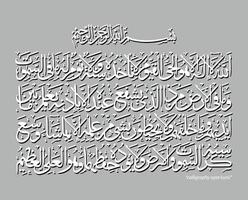 بسم الله الرحمن الرحيم
الله لا إله إلا هو الحي القيوم لا تأخذه سنة ولا نوم له ما في السموات
وما في الأرض من ذا الذي يشفع عنده إلا بإذنه يعلم ما بين
أيديهم وما خلفهم ولا يحيطون بشيء من علمه إلا بما شاء وسع
كرسيه السموات والأرض ولا يؤده حفظهما وهو العلي العظيم
"calligraphy ayat kursi"